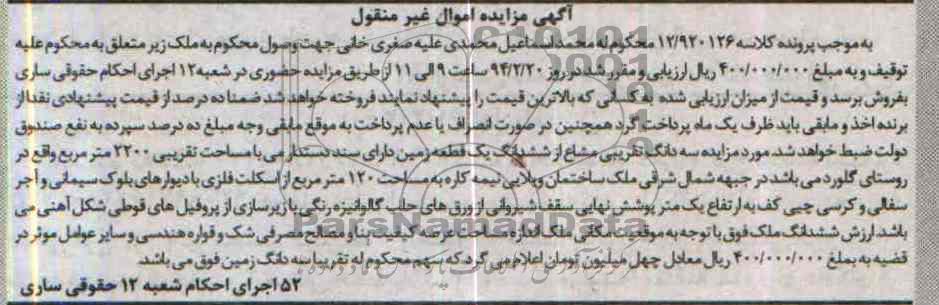 آگهی مزایده اموال غیر منقول
به موجب پرونده کلاسه ۱۲/۹۲۰۱۲۶ محکوم له محمد اسماعیل محمدی علیه صغری خانی جهت وصول محکوم به ملک زیر متعلق به محکوم علیه
توقیف و به مبلغ ۴۰۰/۰۰۰/۰۰۰ ریال ارزیابی و مقرر شد در روز ۹۴/۲/۲۰ ساعت ۹ الی ۱۱ از طریق مزایده حضوری در شعبه ۱۲ اجرای احکام حقوقی ساری
بفروش برسد و قیمت از میزان ارزیابی شده به کسانی که بالاترین قیمت را پیشنهاد نمایند فروخته خواهد شد ضمنا ده درصد از قیمت پیشنهادی نقدا از
برنده اخذ و مابقی باید ظرف یک ماه پرداخت گرد همچنین در صورت انصراف یا عدم پرداخت به موقع مابقی وجه مبلغ ده درصد سپرده به نفع صندوق
دولت ضبط خواهد شد. مورد مزایده سه دانگ تقریبی مشاع از ششدانگ یک قطعه زمین دارای سند دستدار می با مساحت تقریبی ۲۲۰۰ متر مربع واقع در
روستای گلورد می باشد در جبهه شمال شرقی ملک ساختمان ویلایی نیمه کاره به مساحت ۱۲۰ متر مربع از اسکلت فلزی با دیوارهای بلوک سیمانی و آجر
سفالی و کرسی چیی کف به ارتفاع یک متر پوشش نهایی سقف شیروانی از ورق های حلب گالوانیزه رنگی با زیرسازی از پروفیل های قوطی شکل آهنی می
باشد. ارزش ششدانگ ملک فوق با توجه به موقعیت مکانی ملک اندازه مساحت عرصه کیفیت بنا و مصالح مصرفی شک و قواره هندسی و سایر عوامل موثر در
قضیه به بملغ ۴۰۰/۰۰۰/۰۰۰ ریال معادل چهل میلیون تومان اعلام می گرد که سهم محکوم له تقریبا سه دانگ زمین فوق می باشد
۵۲ اجرای احکام شعبه ۱۲ حقوقی ساری
ParsNamadData